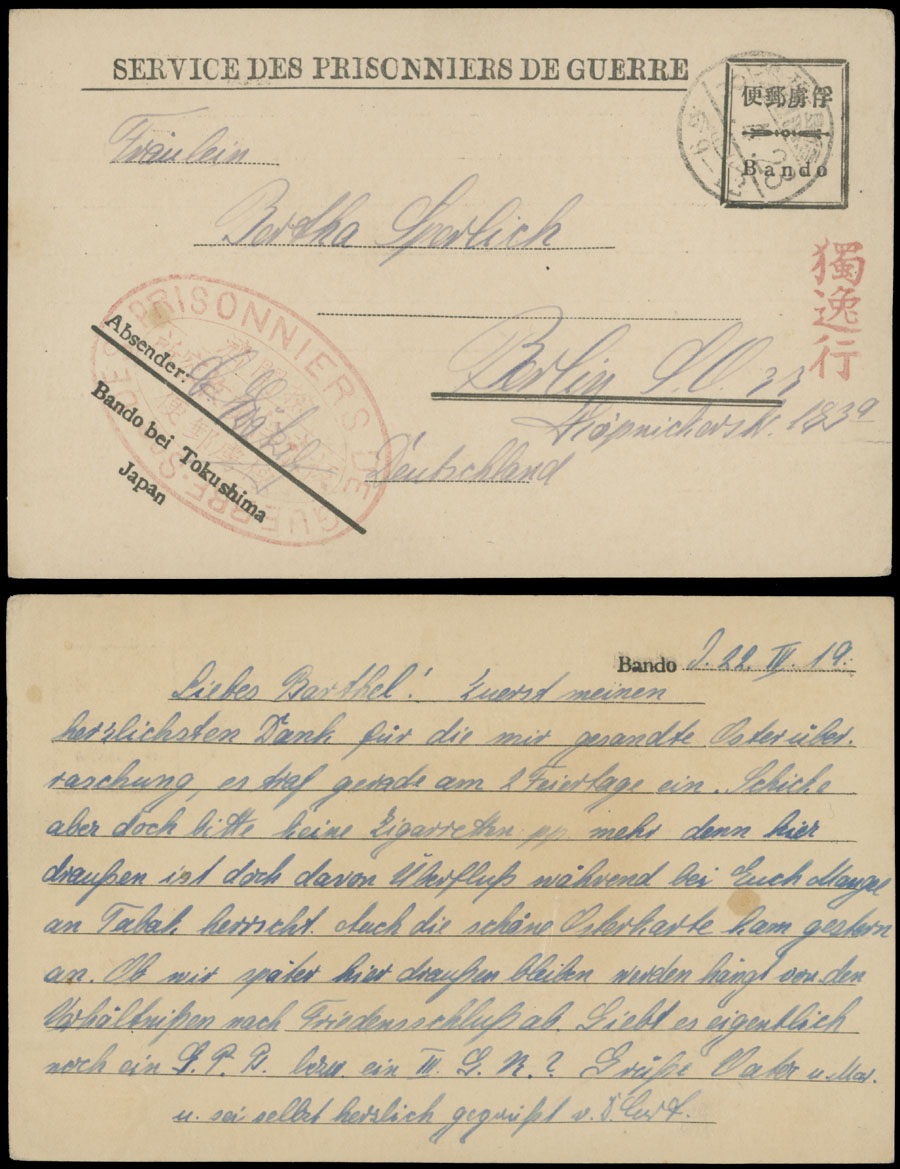 SERVICE DES PRISONNIERS DE GUERRE
便郵虜俘
Bando
23
Fräulein
Bertha Sperlich
獨逸行
Berlin S.O. 33
Köpnickerstr. 183a
Deutschland
PRISONNIERS DE GUERRE
Absender:
Bando bei Tokushima
Japan
Bando J. 22. IV. 19.
Liebes Barthel! Zuerst meinen
herzlichsten Dank für die mir gesandte Osterüber-
raschung, es traf gerade am 2 Feiertage ein. Schicke
aber doch bitte keine Zigarretten pp. mehr denn hier
draußen ist doch davon Überfluß während bei Euch Mangel
an Tabak herrscht. Auch die schöne Osterkarte kam gestern
an. Ob wir später hier draußen bleiben werden hängt von den
Verhältnißen nach Friedensschluß ab. Giebt es eigentlich
noch ein S. P. B. bzw. ein III. G. R.? Grüße Vater u.
u. sei selbst herzlich gegrüßt v. D. Curt.